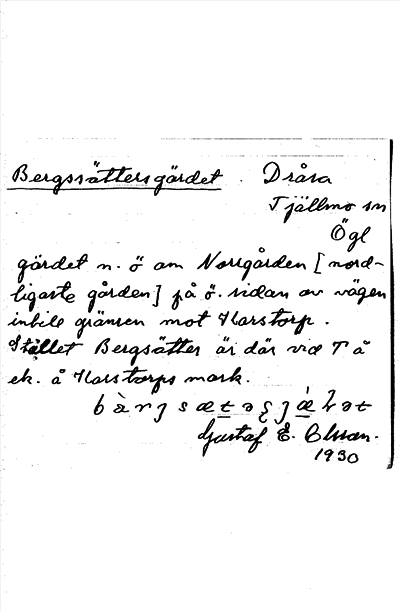 Bergssättersgärdet. Dråsa
Tjällmo sn
Ögl
gärdet n. ö om Norrgården [nord-
ligaste gården] på ö. sidan av vägen
intill gränsen mot Karstorp.
Stället Bergsätter är där vid T å
ek. å Karstorps mark.
Gustaf E. Olsson.
1930